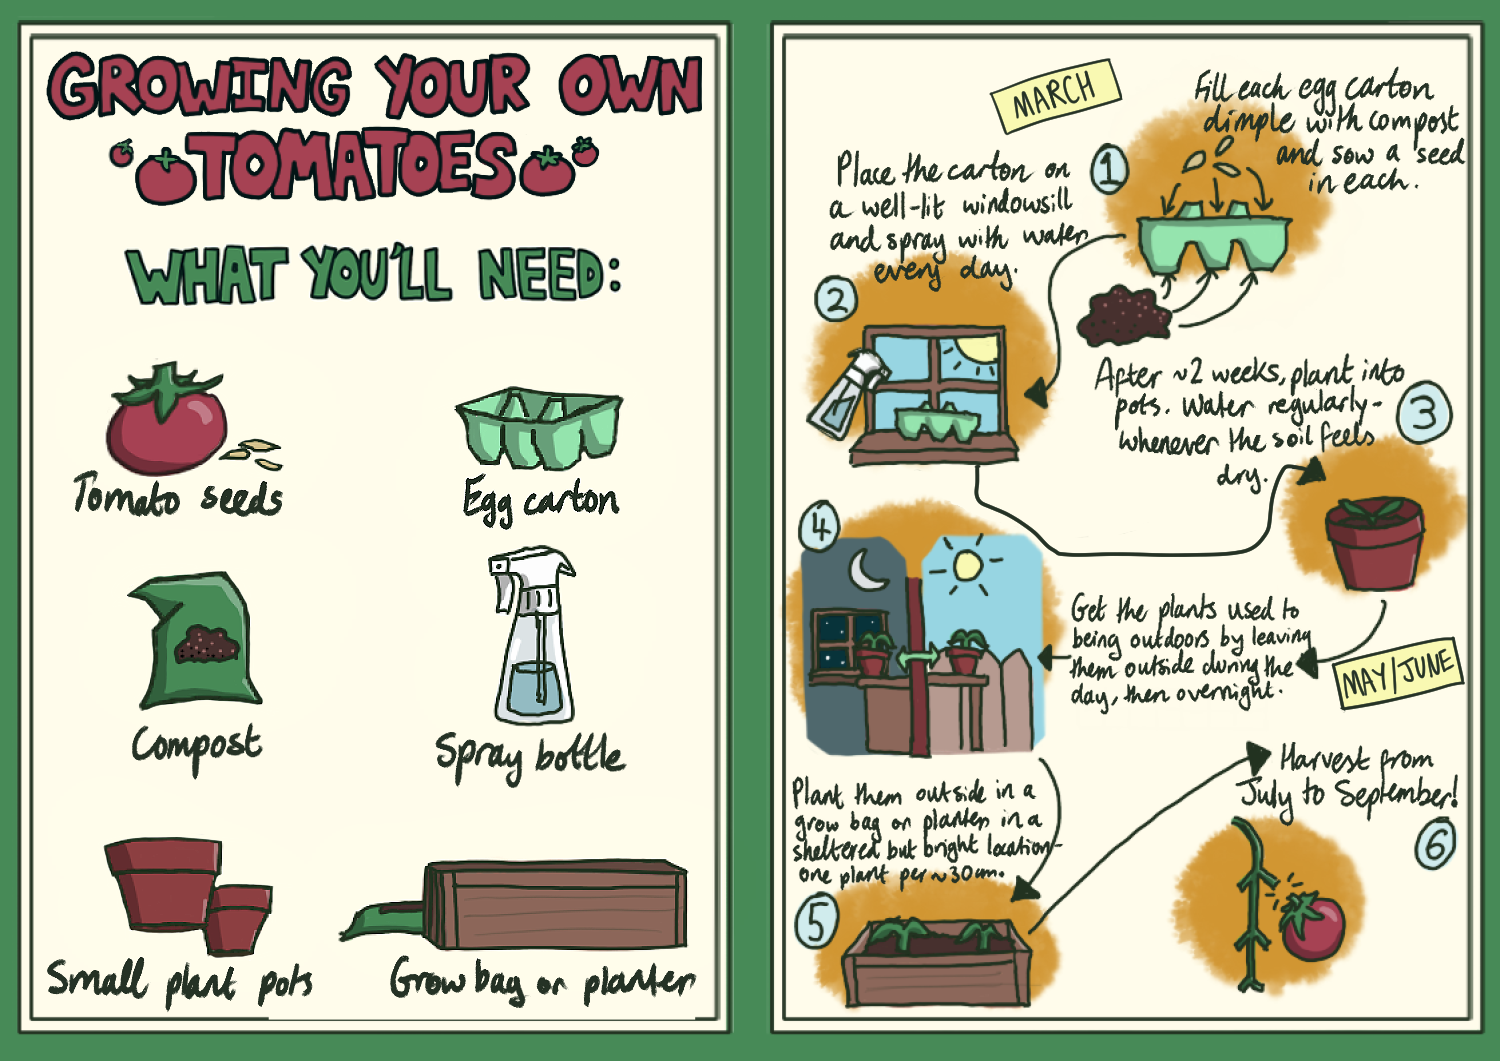 GROWING YOUR OWN
TOMATOES
WHAT YOU'LL NEED:
Tomato seeds
Egg carton
Compost
Spray bottle
Small plant pots
Grow bag or planter
MARCH
1
Fill each egg carton
dimple with compost
and sow a seed
in each.
2
Place the carton on
a well-lit windowsill
and spray with water
every day.
3
After ~2 weeks, plant into
pots. Water regularly-
whenever the soil feels
dry.
MAY/JUNE
4
Get the plants used to
being outdoors by leaving
them outside during the
day, then overnight.
5
Plant them outside in a
grow bag or planter in a
sheltered but bright location-
one plant per ~30cm.
6
Harvest from
July to September!